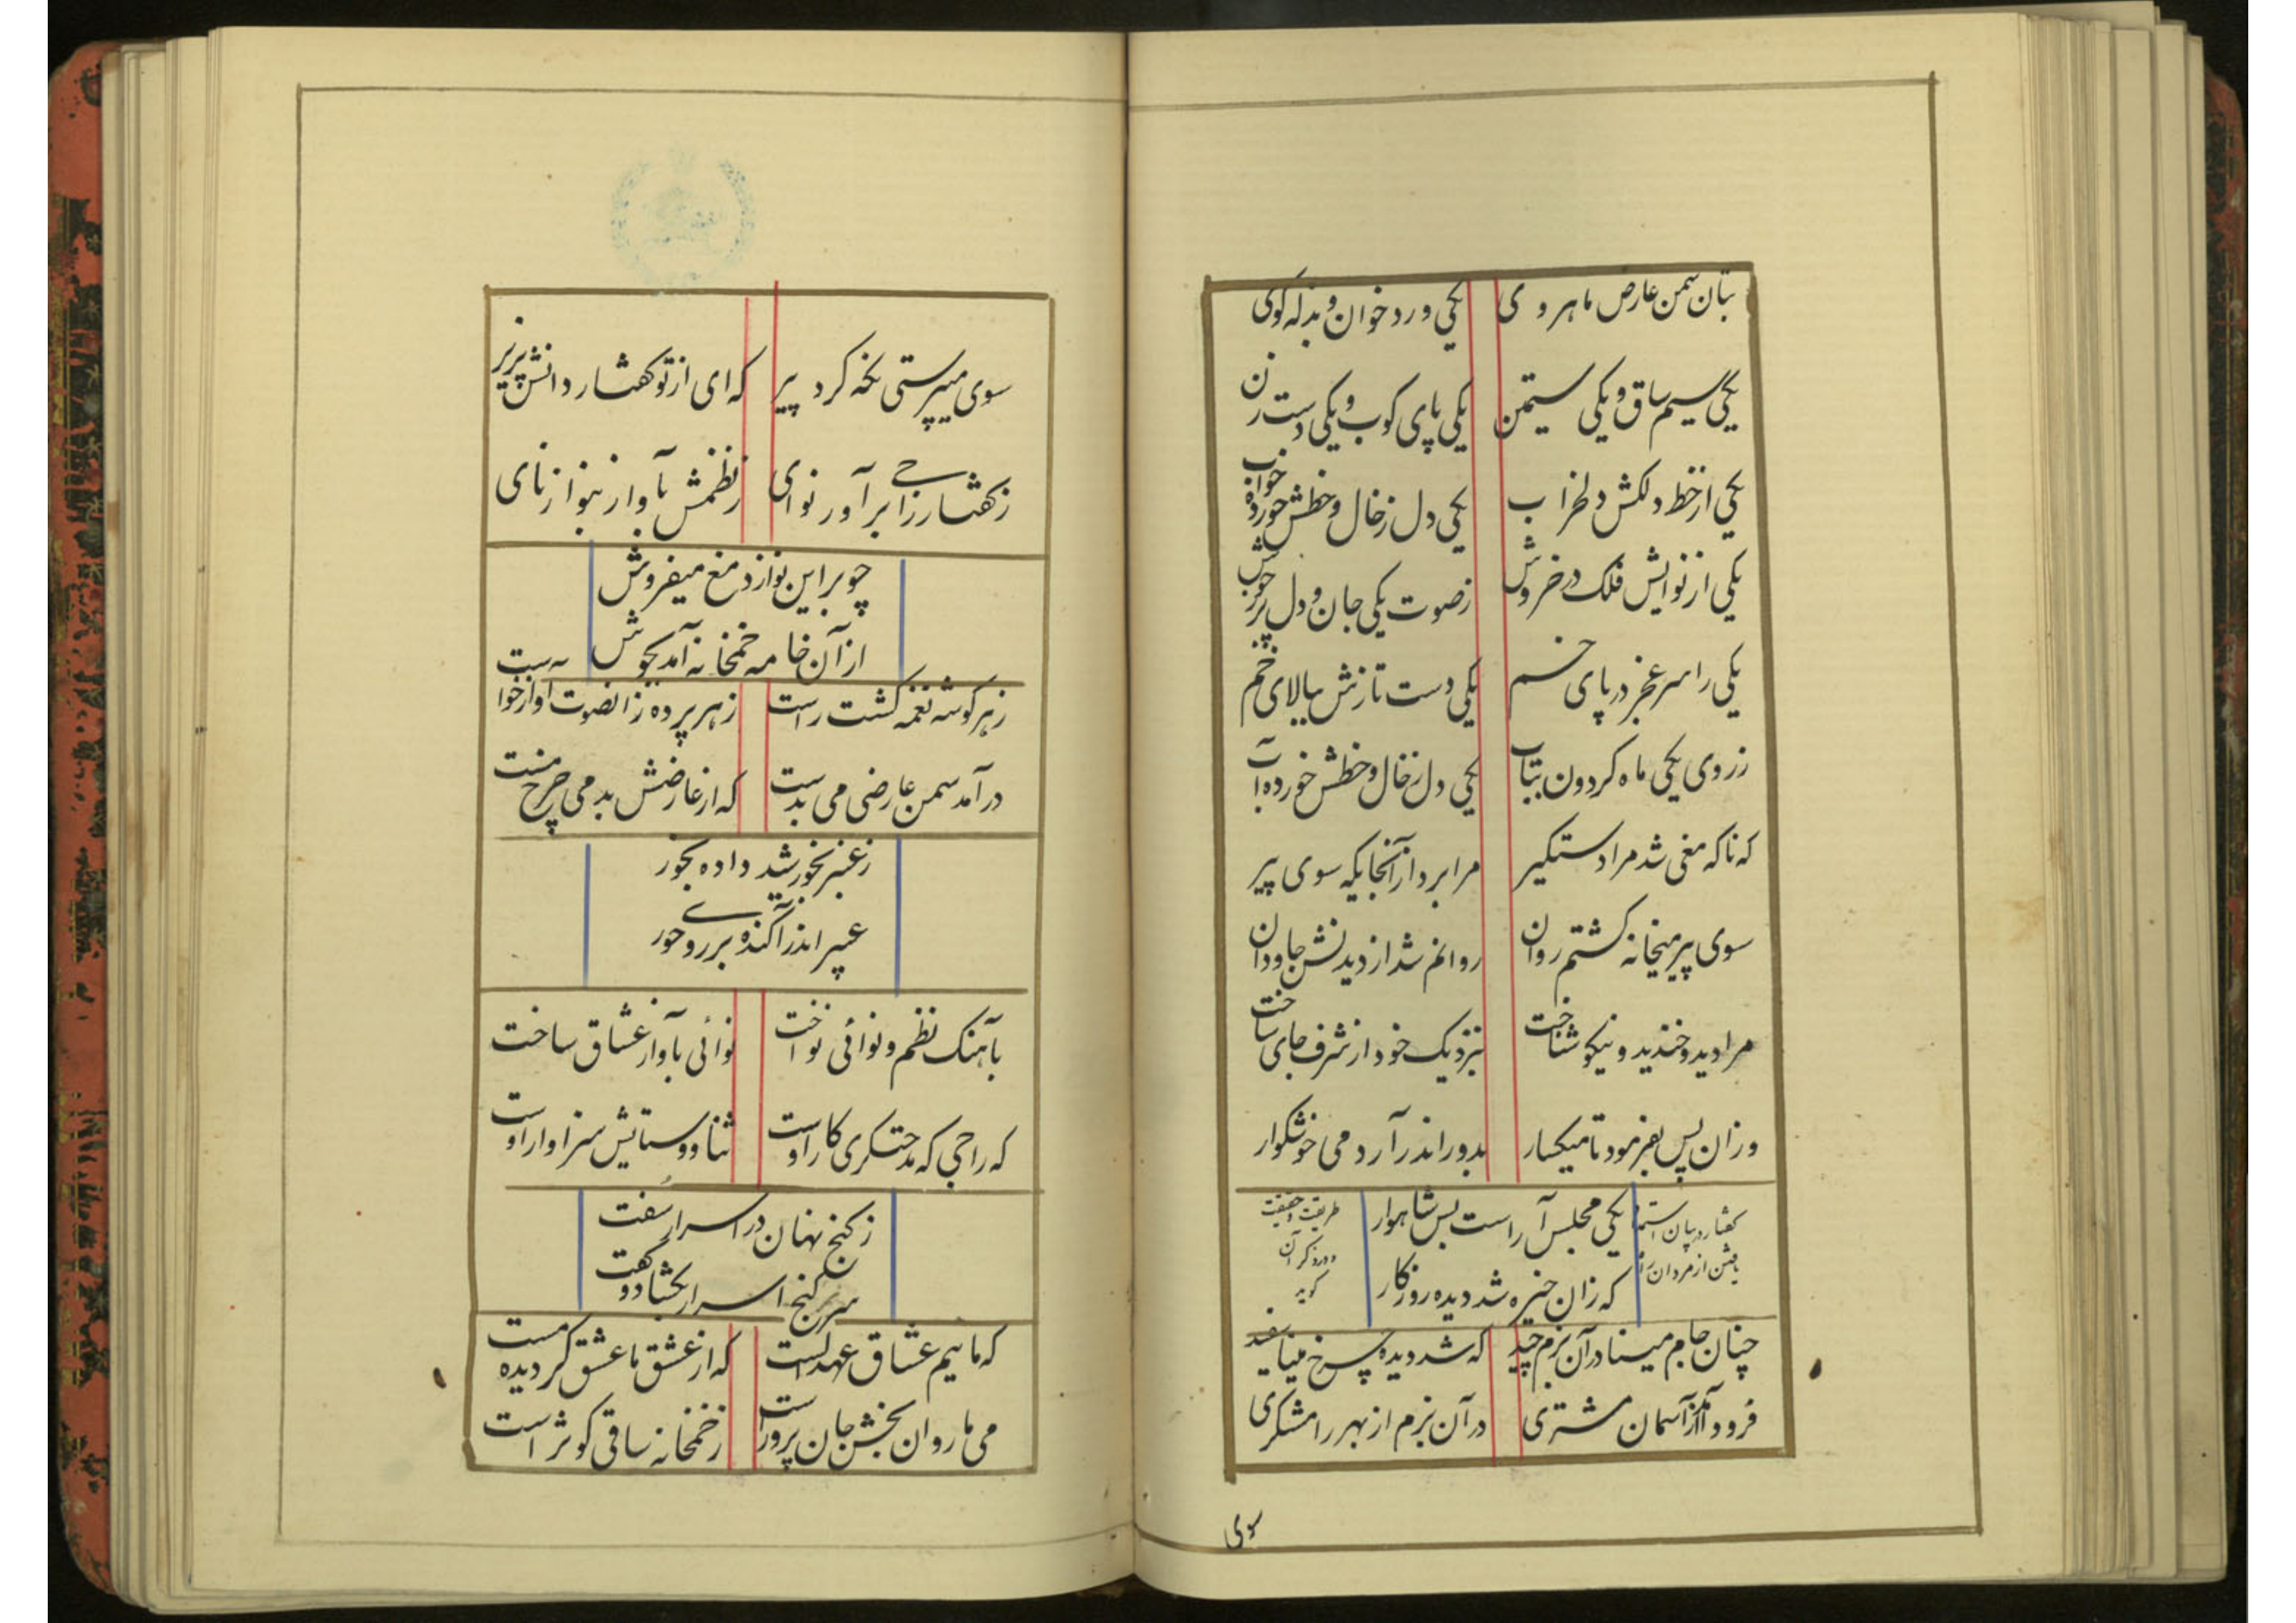 بتان سمن عارض ماهروی یکی ورد خوان و بذله کوی
یکی سیم ساق و یکی سیمتن یکی پای کوب و یکی دست زن
یکی از خط دلکش دلخراب یکی دل ز خال و خطش خورده خواب
یکی از نوایش فلک در خروش ز صوت یکی جان و دل پر ز جوش
یکی را سر عجز در پای خم یکی دست نازش ببالای خم
ز روی یکی ماه کردون بتاب یکی دل ز خال و خطش خورده آب
که ناکه مغی شد مرا دستکیر مرا برد از آنجایکه سوی پیر
سوی پیر میخانه کشتم روان روانم شد از دیدنش جاودان
مرا دید و خندید و نیکو شناخت بنزدیک خود از شرف جای ساخت
وزان پس بفرمود تا میکسار بدور اندر آرد می خوشکوار
کفتار در بیان
یکی مجلس آراست بس شاهوار
طریقت و حقیقت
از مردان
که زان خیره شد دیده روزکار
و در ذکر آن
کوید
چنان جام مینا در آن بزم چید که شد دیده چرخ مینا سفید
فرود آمد از آسمان مشتری در آن بزم از بهر رامشکری
سوی
سوی میپرستی نکه کرد پیر که ای از تو کفتار دانش پزیر
ز کفتار راجی برآور نوای ز نظمش بآواز بنواز نای
چو بر این نوا زد مغ میفروش
از آن خامه خمخانه آمد بجوش
ز هر کوشه نغمه کشت راست ز هر پرده زانصوت آواز خواست
درآمد سمن عارضی می بدست که از عارضش بد می چرخ مست
ز عنبر بخورشید داده بخور
عبیر اندر آکنده بر روی حور
بآهنک نظم و نوائی نواخت نوائی بآواز عشاق ساخت
که راجی که مدحتکری کار اوست ثنا و ستایش سزاوار اوست
ز کنج نهان در اسرار سفت
سر کنج اسرار بکشاد و کفت
که مائیم عشاق عهد الست که از عشق ما عشق کردیده مست
می ما روان بخش جان پرور است ز خمخانه ساقی کوثر است